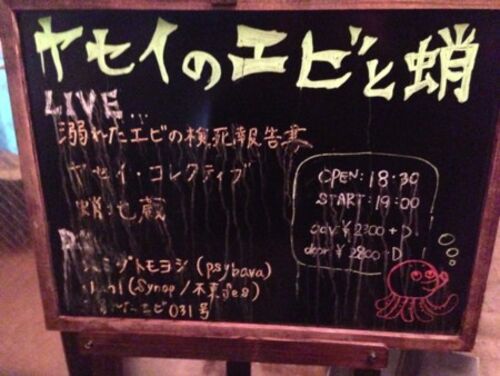 ヤセイのエビと蛸
LIVE...
溺れたエビの検死報告書
ヤセイ・コレクティブ
蛸地蔵
OPEN: 18:30
START: 19:00
adv ¥2300 + D
door ¥2800 + D
トモヨシ (psybava)
(Synop / 不東fes)
エビ 031号